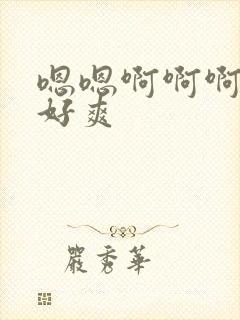 嗯嗯啊啊啊
好爽
嚴秀華